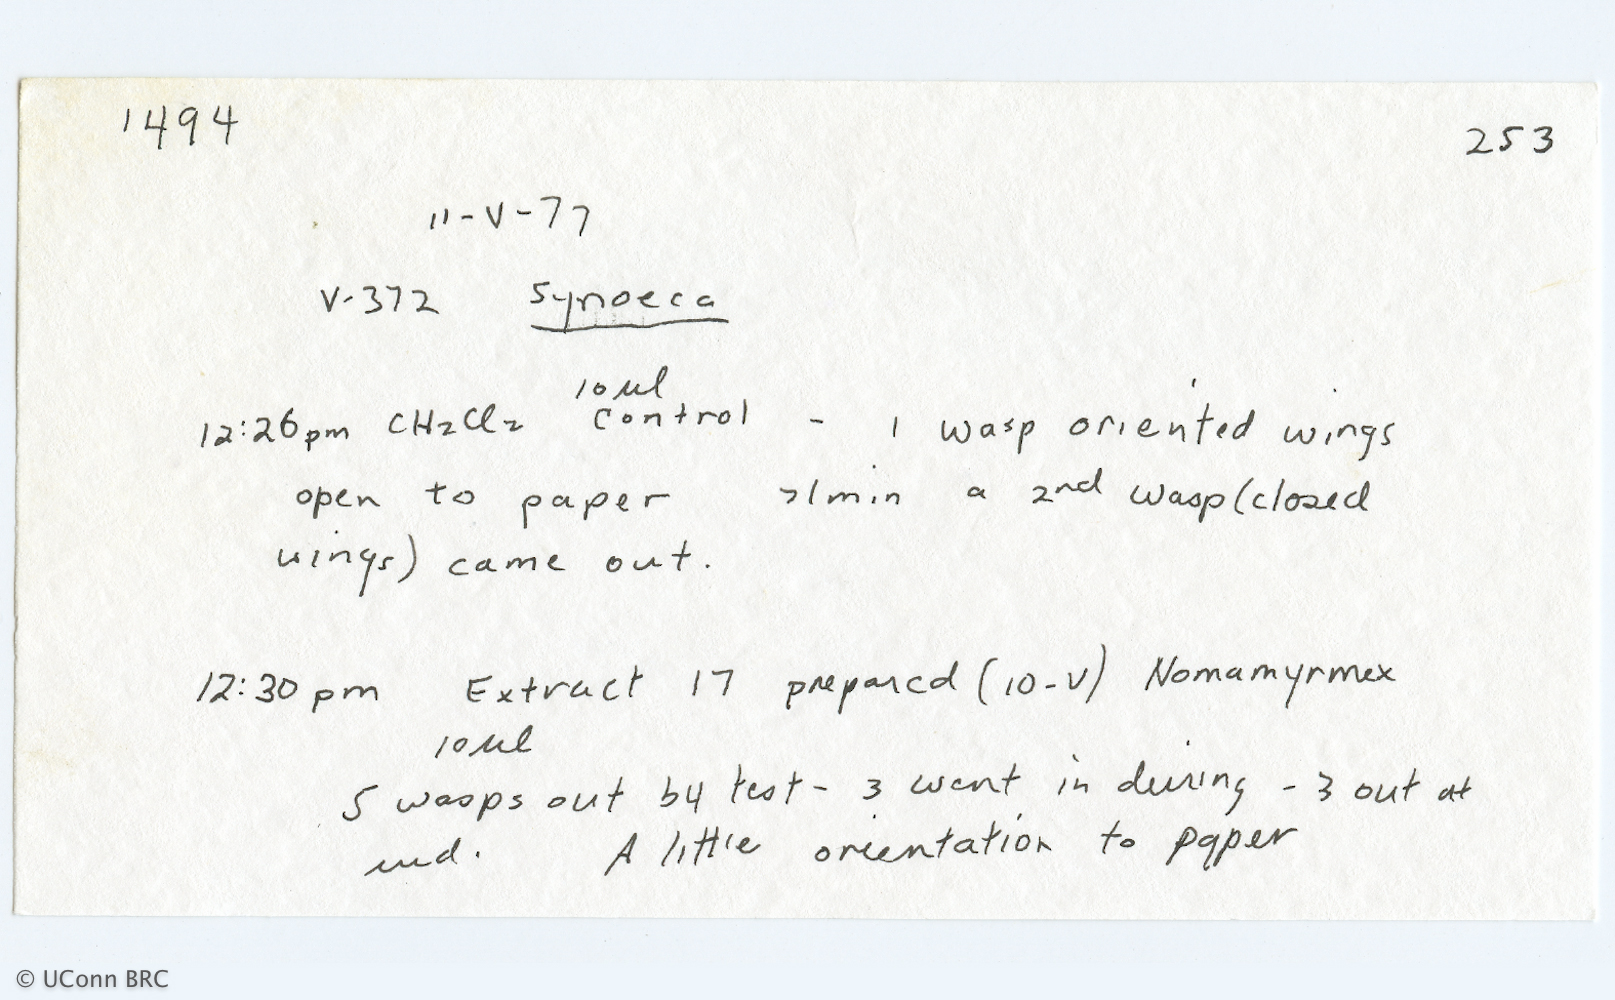 1494
253
11-V-77
V-372 Synoeca
10 μl
12:26pm CH2Cl2 Control - 1 wasp oriented wings
open to paper >1min a 2nd wasp (closed
wings) came out.
12:30pm Extract 17 prepared (10-V) Nomamyrmex
10 μl
5 wasps out b4 test - 3 went in during - 3 out at
end. A little orientation to paper
© UConn BRC